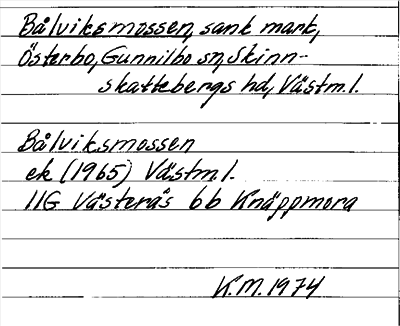 Bålviksmossen, sank mark,
Österbo, Gunnilbo sn, Skinn-
skattebergs hd, Västm.l.
Bålviksmossen
ek (1965) Västm.l.
11G Västerås 6b Knäppmora
K.M. 1974